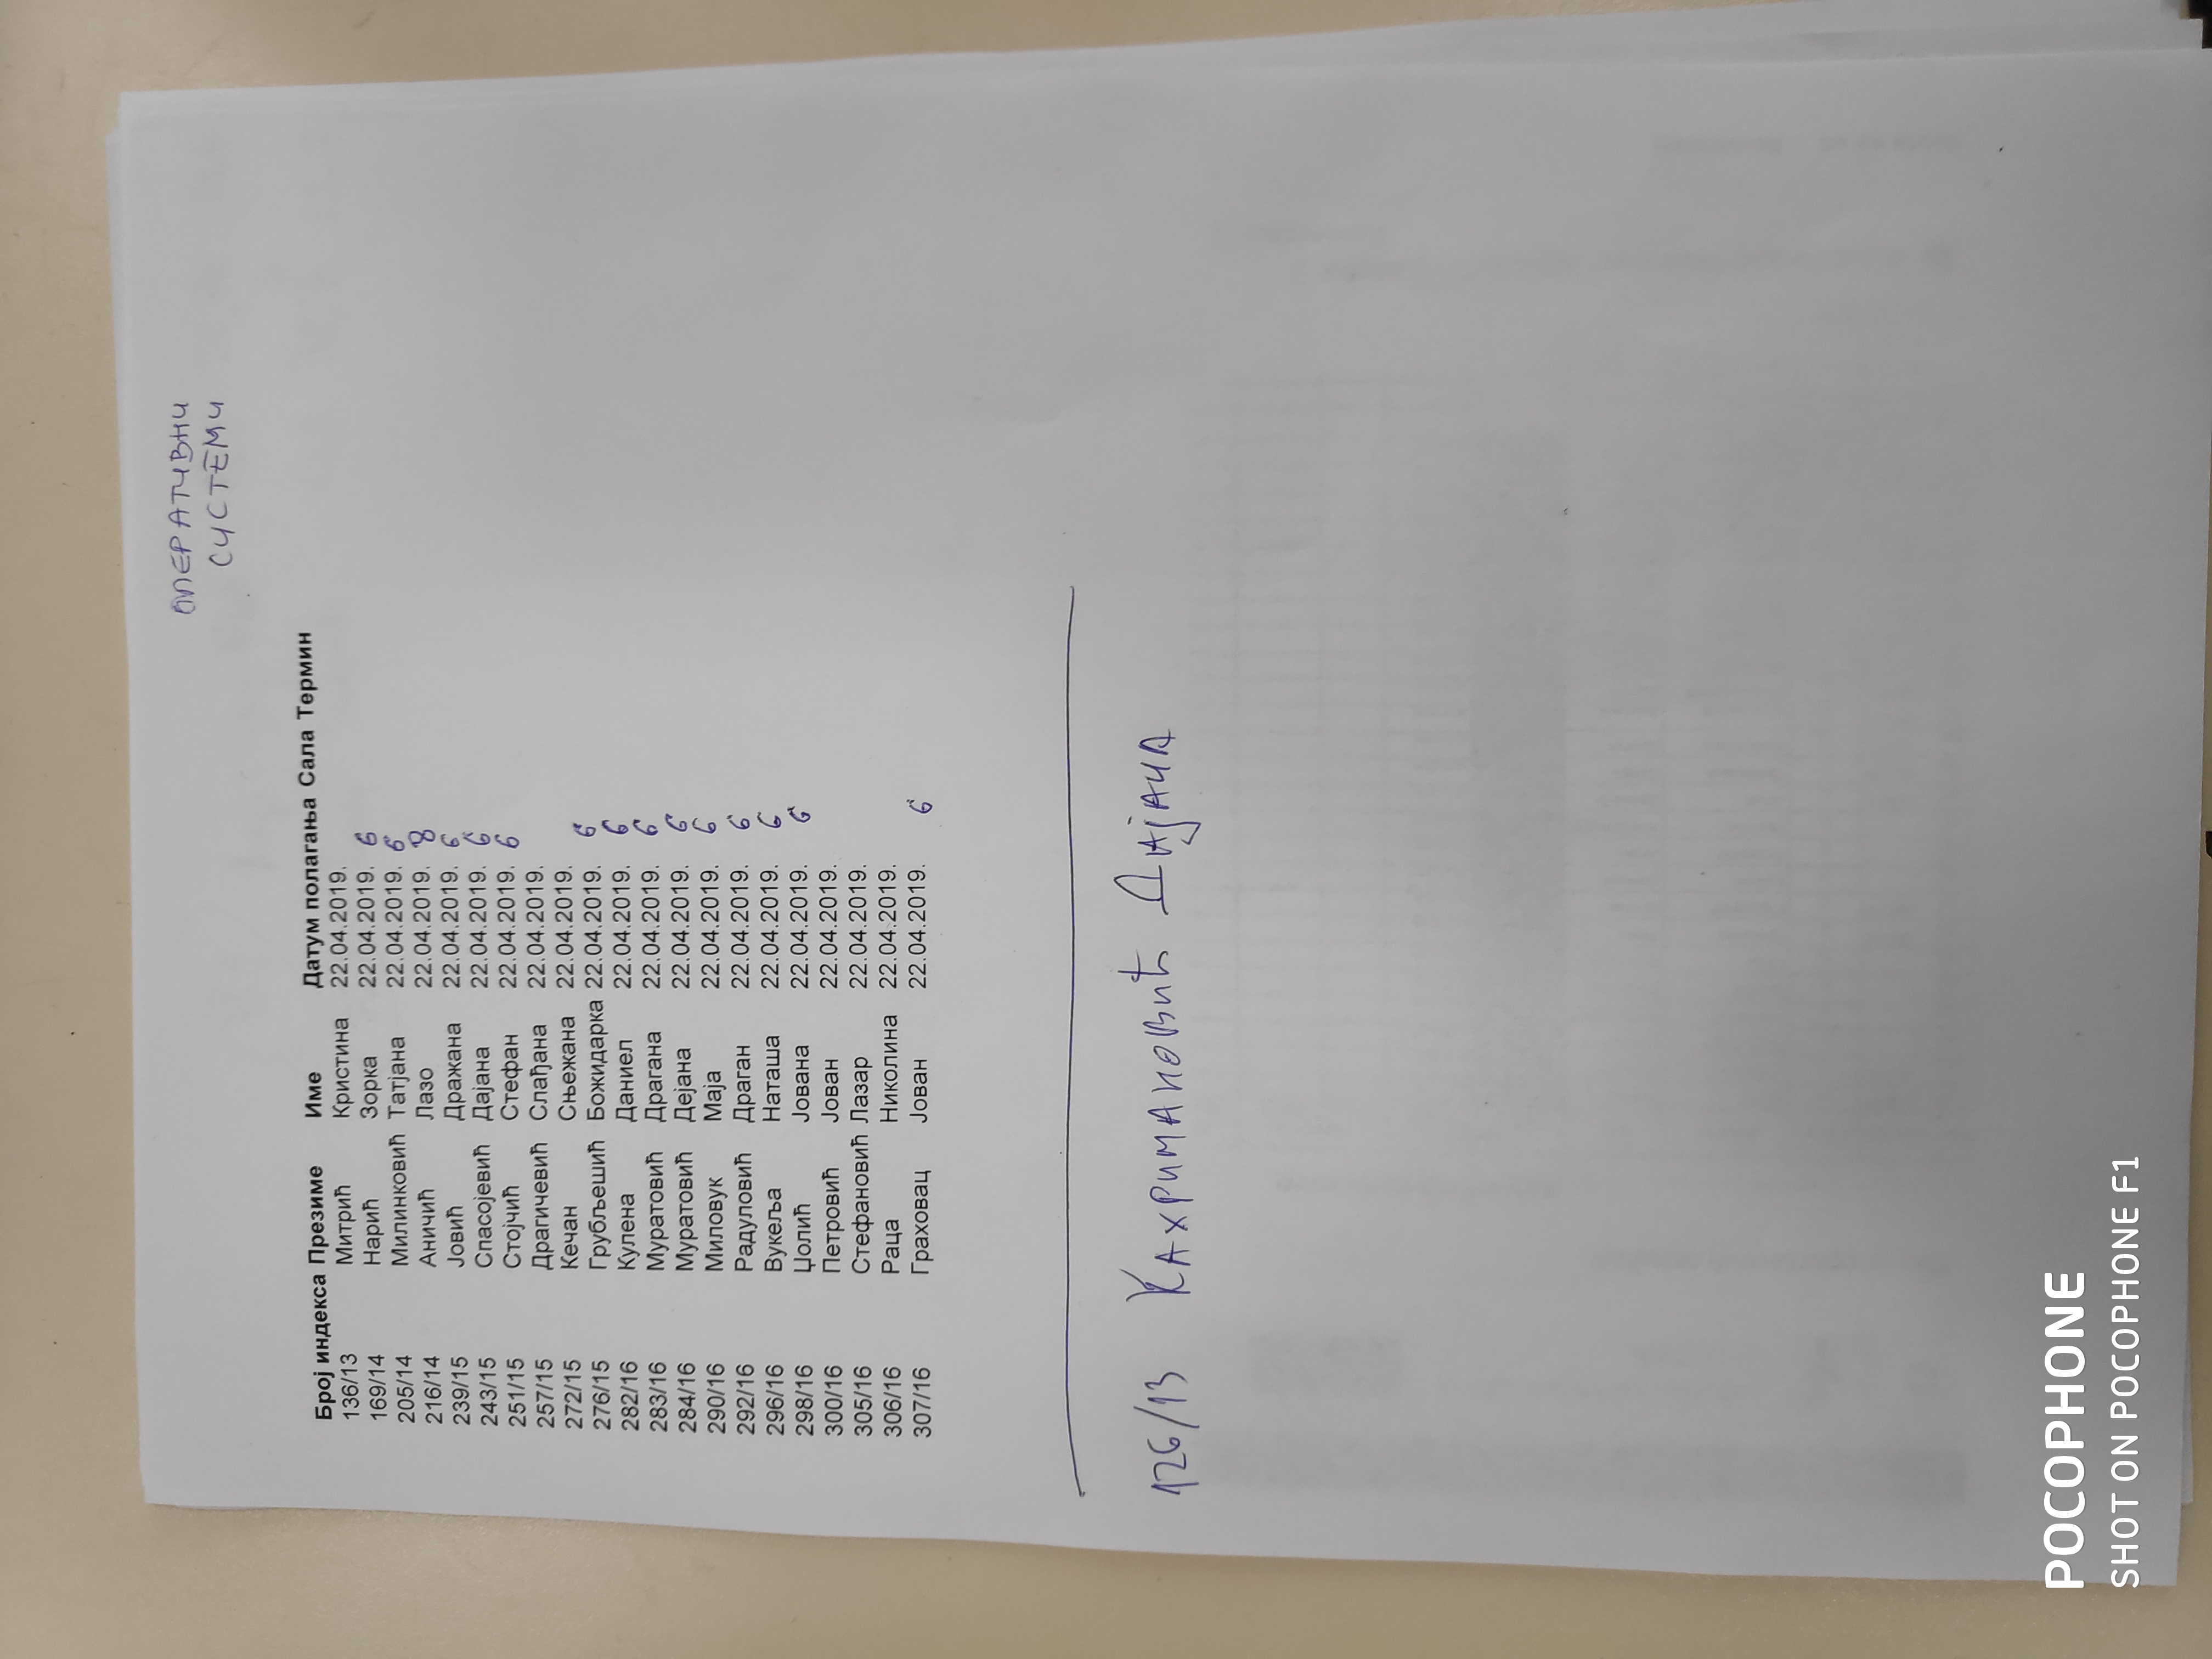 ОПЕРАТИВНИ
СИСТЕМИ
Број индекса Презиме Име Датум полагања Сала Термин
136/13 Митрић Кристина 22.04.2019.
169/14 Нарић Зорка 22.04.2019. 6
205/14 Милинковић Татјана 22.04.2019. 6
216/14 Аничић Лазо 22.04.2019. 8
239/15 Јовић Дражана 22.04.2019. 6
243/15 Спасојевић Дајана 22.04.2019. 6
251/15 Стојчић Стефан 22.04.2019. 6
257/15 Драгичевић Слађана 22.04.2019.
272/15 Кечан Сњежана 22.04.2019.
276/15 Грубљешић Божидарка 22.04.2019. 6
282/16 Кулена Даниел 22.04.2019. 6
283/16 Муратовић Драгана 22.04.2019. 6
284/16 Муратовић Дејана 22.04.2019. 6
290/16 Миловук Маја 22.04.2019. 6
292/16 Радуловић Драган 22.04.2019. 6
296/16 Вукеља Наташа 22.04.2019. 6
298/16 Џолић Јована 22.04.2019. 6
300/16 Петровић Јован 22.04.2019.
305/16 Стефановић Лазар 22.04.2019.
306/16 Раца Николина 22.04.2019.
307/16 Граховац Јован 22.04.2019. 6
126/13 Кахримановић Дајана
POCOPHONE
SHOT ON POCOPHONE F1